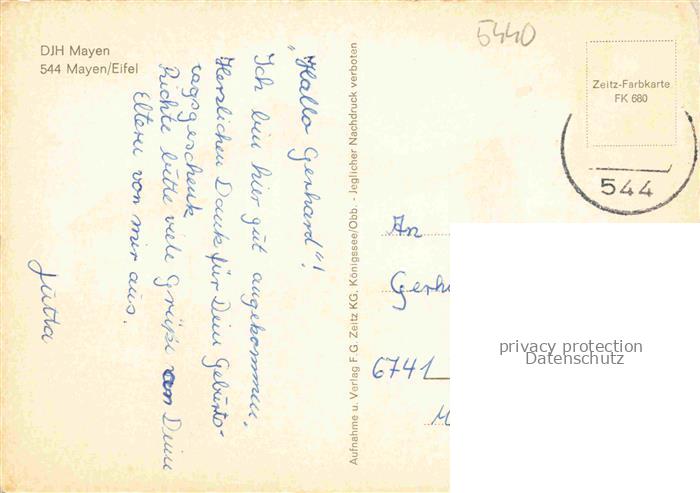 DJH Mayen
544 Mayen/Eifel
5440
Zeitz-Farbkarte
FK 680
544
„Hallo Gerhard"!
Ich bin hier gut angekommen.
Herzlichen Dank für Dein Geburts-
tagsgeschenk
Richte bitte viele Grüße an Deine
Eltern von mir aus.
Jutta
Aufnahme u. Verlag F.G. Zeitz KG. Königssee/Obb. - Jeglicher Nachdruck verboten
An
Gerh
6741
privacy protection
Datenschutz